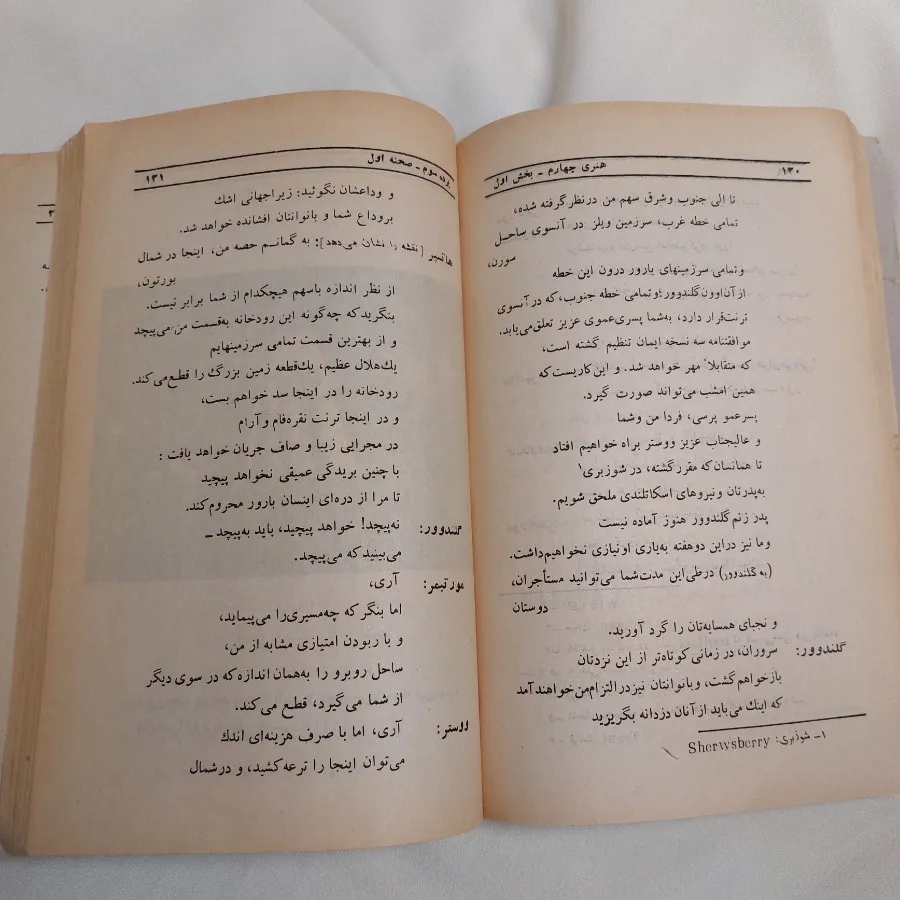 ۱۳۰/ هنری چهارم ـ بخش اول
تا الی جنوب وشرق سهم من درنظرگرفته شده،
تمامی خطه غرب، سرزمین ویلز در آنسوی ساحل
سورن،
وتمامی سرزمینهای بارور درون این خطه
از آن‌اوون‌گلندوور؛وتمامی خطه جنوب،که درآنسوی
ترنت‌قرار دارد، به‌شما پسری‌عموی عزیز تعلق‌می‌یابد.
موافقتنامه سه نسخه ایمان تنظیم گشته است،
که متقابلاً مهر خواهد شد. و این‌کاریست‌که
همین امشب می‌تواند صورت گیرد.
پسرعمو پرسی، فردا من وشما
و عالیجناب عزیز ووستر براه خواهیم افتاد
تا همانسان‌که مقررگشته، در شوزبری۱
به‌پدرتان ونیروهای اسکاتلندی ملحق شویم.
پدر زنم‌گلندوور هنوز آماده نیست
وما نیز دراین دوهفته به‌یاری اونیازی نخواهیم‌داشت.
(به گلندوور) درطی‌این مدت‌شما می‌توانید مستأجران،
دوستان
و نجبای همسایه‌تان را گرد آورید.
گلندوور: سروران، در زمانی کوتاه‌تر از این نزدتان
بازخواهم‌گشت، وبانوانتان نیزدرالتزام‌من‌خواهندآمد
که اینك می‌باید ازآنان دزدانه بگریزید
۱ـ شوزبری: Sherwsberry
پرده سوم ـ صحنه اول ۱۳۱
و وداعشان نگوئید: زیراجهانی اشك
بروداع شما و بانوانتان افشانده خواهد شد.
هاتسپر [نقشه را نشان می‌دهد]: به گمانم حصه من، اینجا در شمال
بورتون،
از نظر اندازه باسهم هیچکدام از شما برابر نیست.
بنگریدکه چه‌گونه این رودخانه به‌قسمت من‌می‌پیچد
و از بهترین قسمت تمامی سرزمینهایم
یك‌هلال عظیم، یك‌قطعه زمین بزرگ را قطع‌می‌کند.
رودخانه را در اینجا سد خواهم بست،
و در اینجا ترنت نقره‌فام وآرام
در مجرایی زیبا و صاف جریان خواهد یافت :
با چنین بریدگی عمیقی نخواهد پیچید
تا مرا از دره‌ای اینسان بارور محروم‌کند.
گلندوور: نه‌پیچد! خواهد پیچید، باید به‌پیچد ـ
می‌بینید که می‌پیچد.
مورتیمر: آری،
اما بنگر که چه‌مسیری‌را می‌پیماید،
و با ربودن امتیازی مشابه از من،
ساحل روبرو را به‌همان اندازه‌که در سوی دیگر
از شما می‌گیرد، قطع می‌کند.
ووستر: آری، اما با صرف هزینه‌ای اندك
می‌توان اینجا را ترعه‌کشید، و درشمال